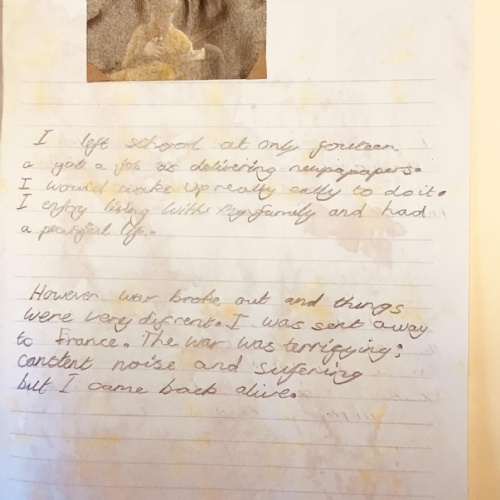 I left school at only fourteen
a got a job as delivering newpapapers.
I would wake up really eally to do it.
I enjoy living withe my family and had
a peacful life.
However war broke out and things
were very difrent. I was sent away
to France. The war was terrifying;
constent noise and sufering
but I came back alive.